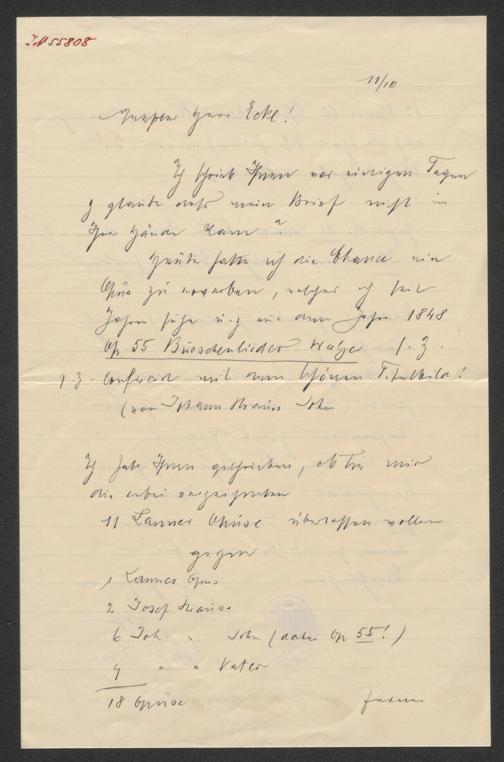 IN 55808
11/10
Herr Ecke!
Ich schrieb Ihnen vor einigen Tagen
& glaube dass mein Brief nicht in
Ihre Hände kam?
Heute hatte ich die Chance ein
Opus zu erwerben, welches ich seit
Jahren suche u. z. aus dem Jahr 1848
Op 55 Burschenlieder Walzer
mit dem schönen Titelbild!
(von Johann Strauss Sohn
Ich habe Ihnen geschrieben, ob Sie mir
die
11 Lanner Opuse überlassen wollen
gegen
Lanner Opus
2 Josef Strauss
6 Joh " Sohn (dabei Op 55!)
9 " " Vater
18 Opuse